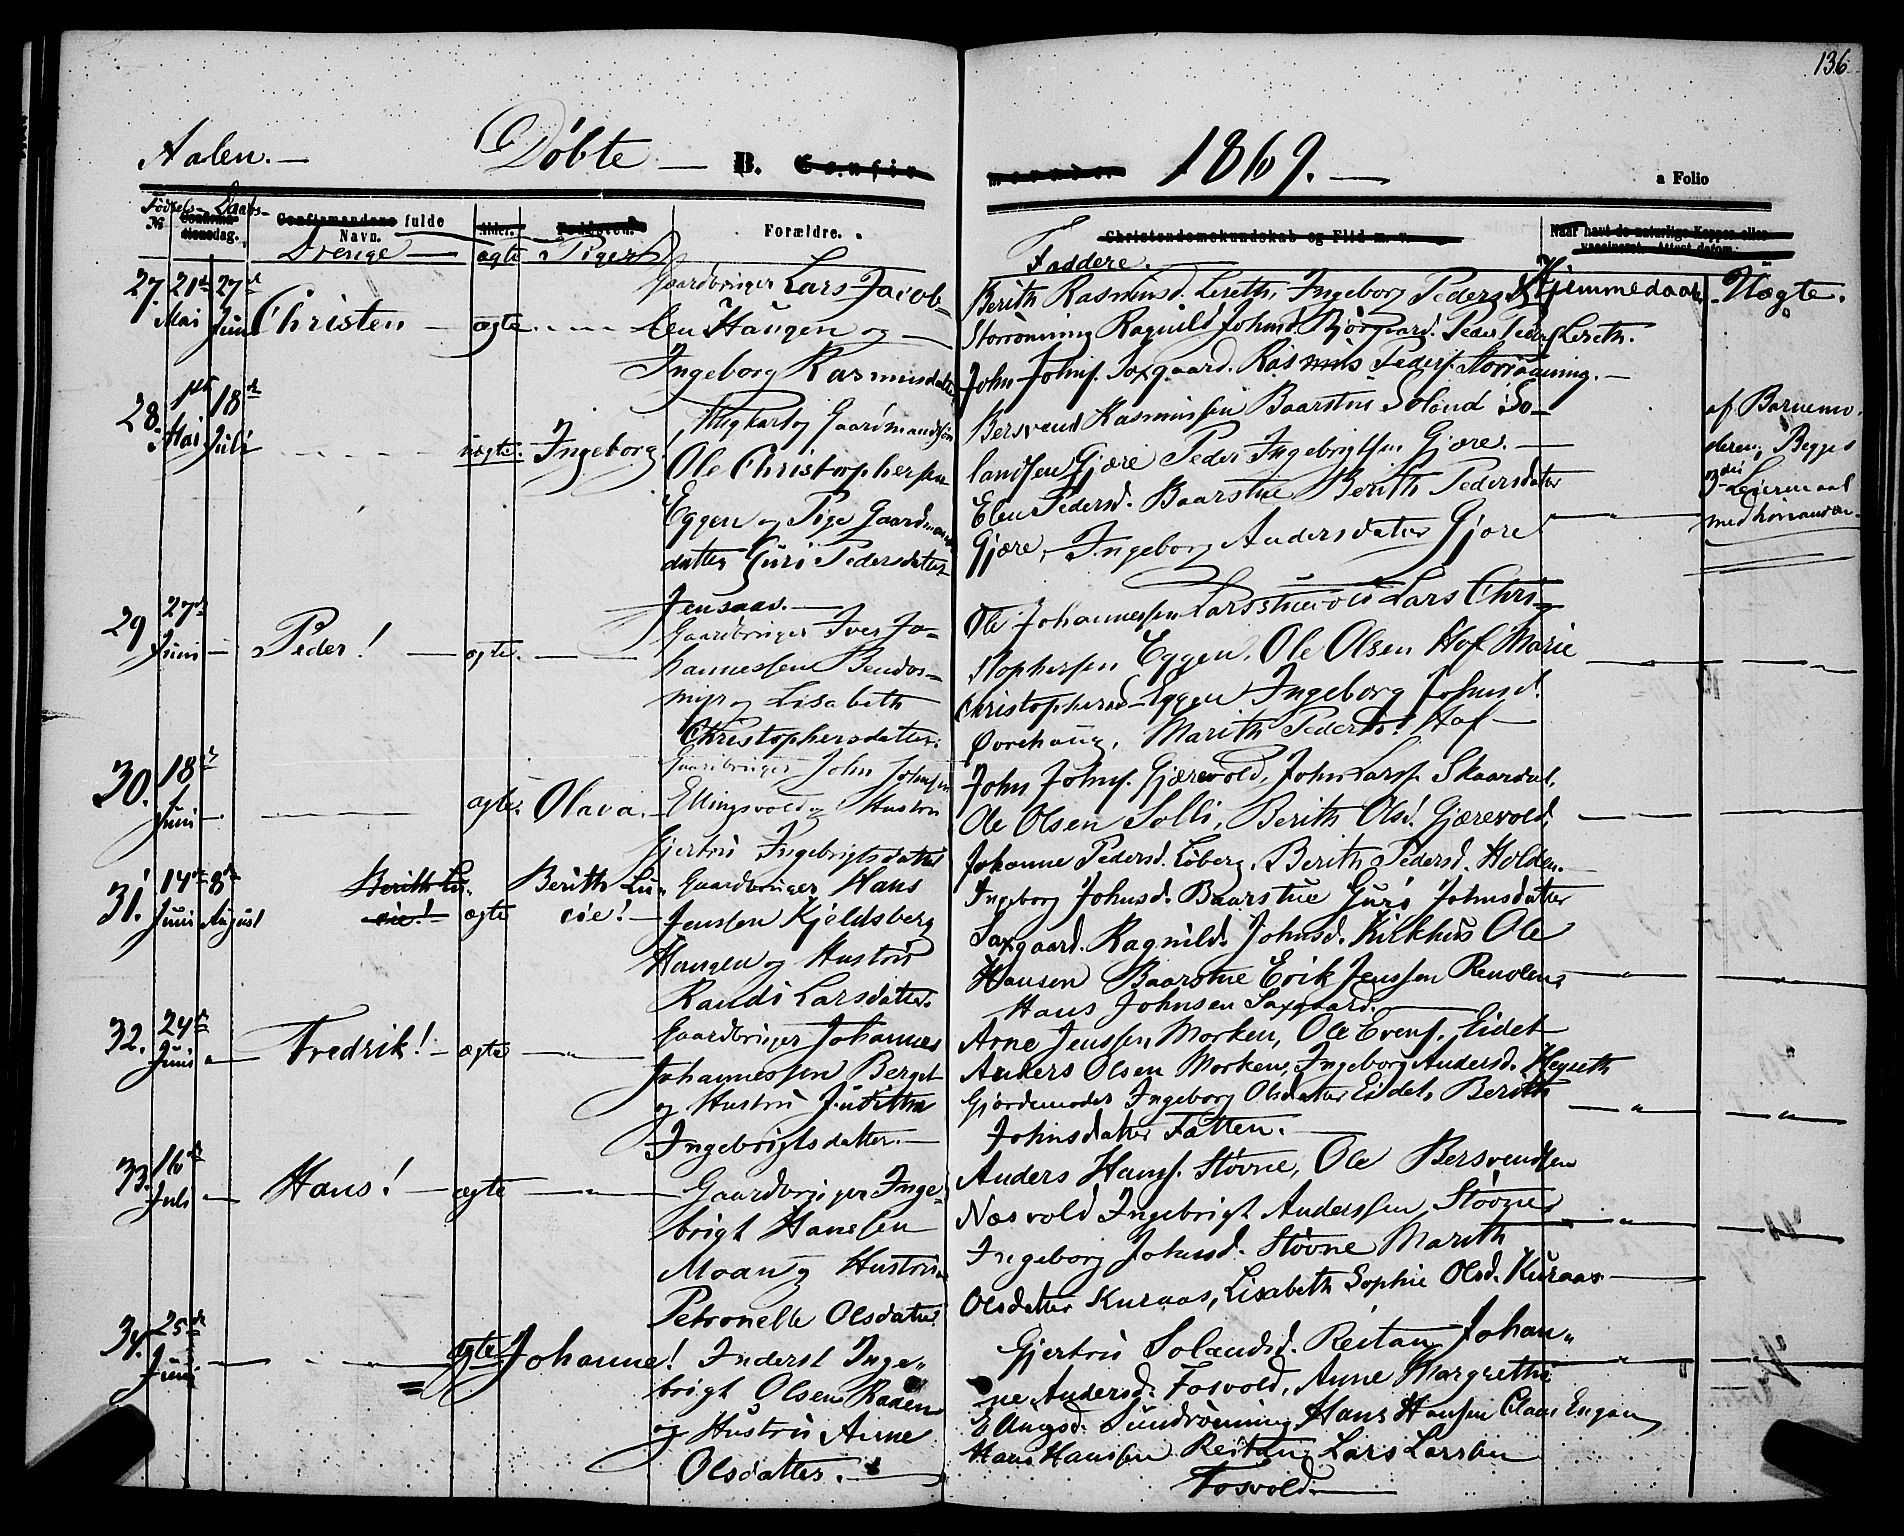 136
Aalen. — Døbte — B. Confir
mander 1869. — a Folio
Fødsels- Daabs-
№ Confirma-
tionsdag. Confirmandens fulde
Navn. Alder. Fødested. Forældre. Christendomskundskab og Flid m. v. Naar havt de naturlige Kopper eller
vaccineret. Attest datum.
Drenge — ægte Piger Faddere. — Hjemmedaab Uægte.
27. 21de Mai 27de Juni Christen — ægte. Gaardbruger Lars Jacob-
sen Haugen og —
Ingeborg Rasmusdatter
Berith Rasmusd. Lereth, Ingeborg Pedersd.
Storrønning Ragnild Johnsd. Bjørgaard. Peder Peders. Lereth.
John Johns. Saxgaard. Rasmus Peders. Storrønning. —
28. Mai 18de Juli uægte. Ingeborg! Ungkarl og Gaardmandssøn
Ole Christophersen
Eggen og Pige Gaardmands
datter Guro Pedersdatter
Jensaas. —
Bersvend Rasmussen Baarstue Solend So-
landsen Gjære Peder Ingebrigtsen Gjøre. —
Elen Pedersd. Baarstue Berith Pedersdatter
Gjære, Ingeborg Andersdatter Gjøre
af Barnemo-
deren, Begges
Leiermaal
med hinanden.
29 27de Juni — Peder! — ægte. — Gaardbruger Iver Jo-
hannessen Bendos-
myr og Lisabeth
Christophersdatter.
Ole Johannessen Larsstuevold Lars Chri-
stophersen Eggen, Ole Olsen Hof Marie
Christophersd. Eggen Ingeborg Johnsd.
Øvrehaug, Marith Pedersd. Hof —
30. 18de Juni — ægte. Olava. — Gaardbruger John Johnsen
Ellingsvold og Hustru
Gjertru Ingebrigtsdatter
John Johns. Gjærevold, John Larss. Skaardal,
Ole Olsen Solli, Berith Olsd. Gjærevold,
Johanne Pedersd. Løberg, Berith Pedersd. Holden.
31. 14de Juni 8de August Berith Lu-
cie! — ægte Berith Lu-
cie! — Gaardbruger Hans
Jenssen Kjeldsberg
Haugen og Hustru
Randi Larsdatter.
Ingeborg Johnsd. Baarstue Guro Johnsdatter
Saxgaard. Ragnild Johnsd. Kirkhus Ole
Hansen Baarstue Erik Jenssen Renolen,
Hans Johnsen Saxgaard. —
32. 24de Juni — Fredrik! — ægte — Gaardbruger Johannes
Johannessen Berget
og Hustru Juditha
Ingebrigtsdatter. —
Arne Jenssen Morken, Ole Evens. Eidet
Anders Olsen Morken, Ingeborg Andersd. Hegseth
Gjordemoder Ingeborg Olsdatter Eidet, Berith
Johnsdatter Fatten. —
33. 16de Juli — Hans! — ægte — Gaardbruger Inge-
brigt Hanssen
Moan og Hustru
Petronelle Olsdatter
Anders Hans. Støvne, Ole Bersvendsen
Næsvold Ingebrigt Anderssen Støvne
Ingeborg Johnsd. Støvne Marith
Olsdatter Kuraas, Lisabeth Sophie Olsd. Kuraas —
34. 25de Juni — ægte Johanne! Inderst Inge-
brigt Olsen Raaen
og Hustru Anne
Olsdatter. —
Gjertru Solemdsd. Reitan Johan-
ne Andersd. Fosvold, Anne Margrethe
Ellingsd. Sundrønning Hans Hansen Claus Engan
Hans Hanssen Reitan, Lars Larssen
Fosvold —